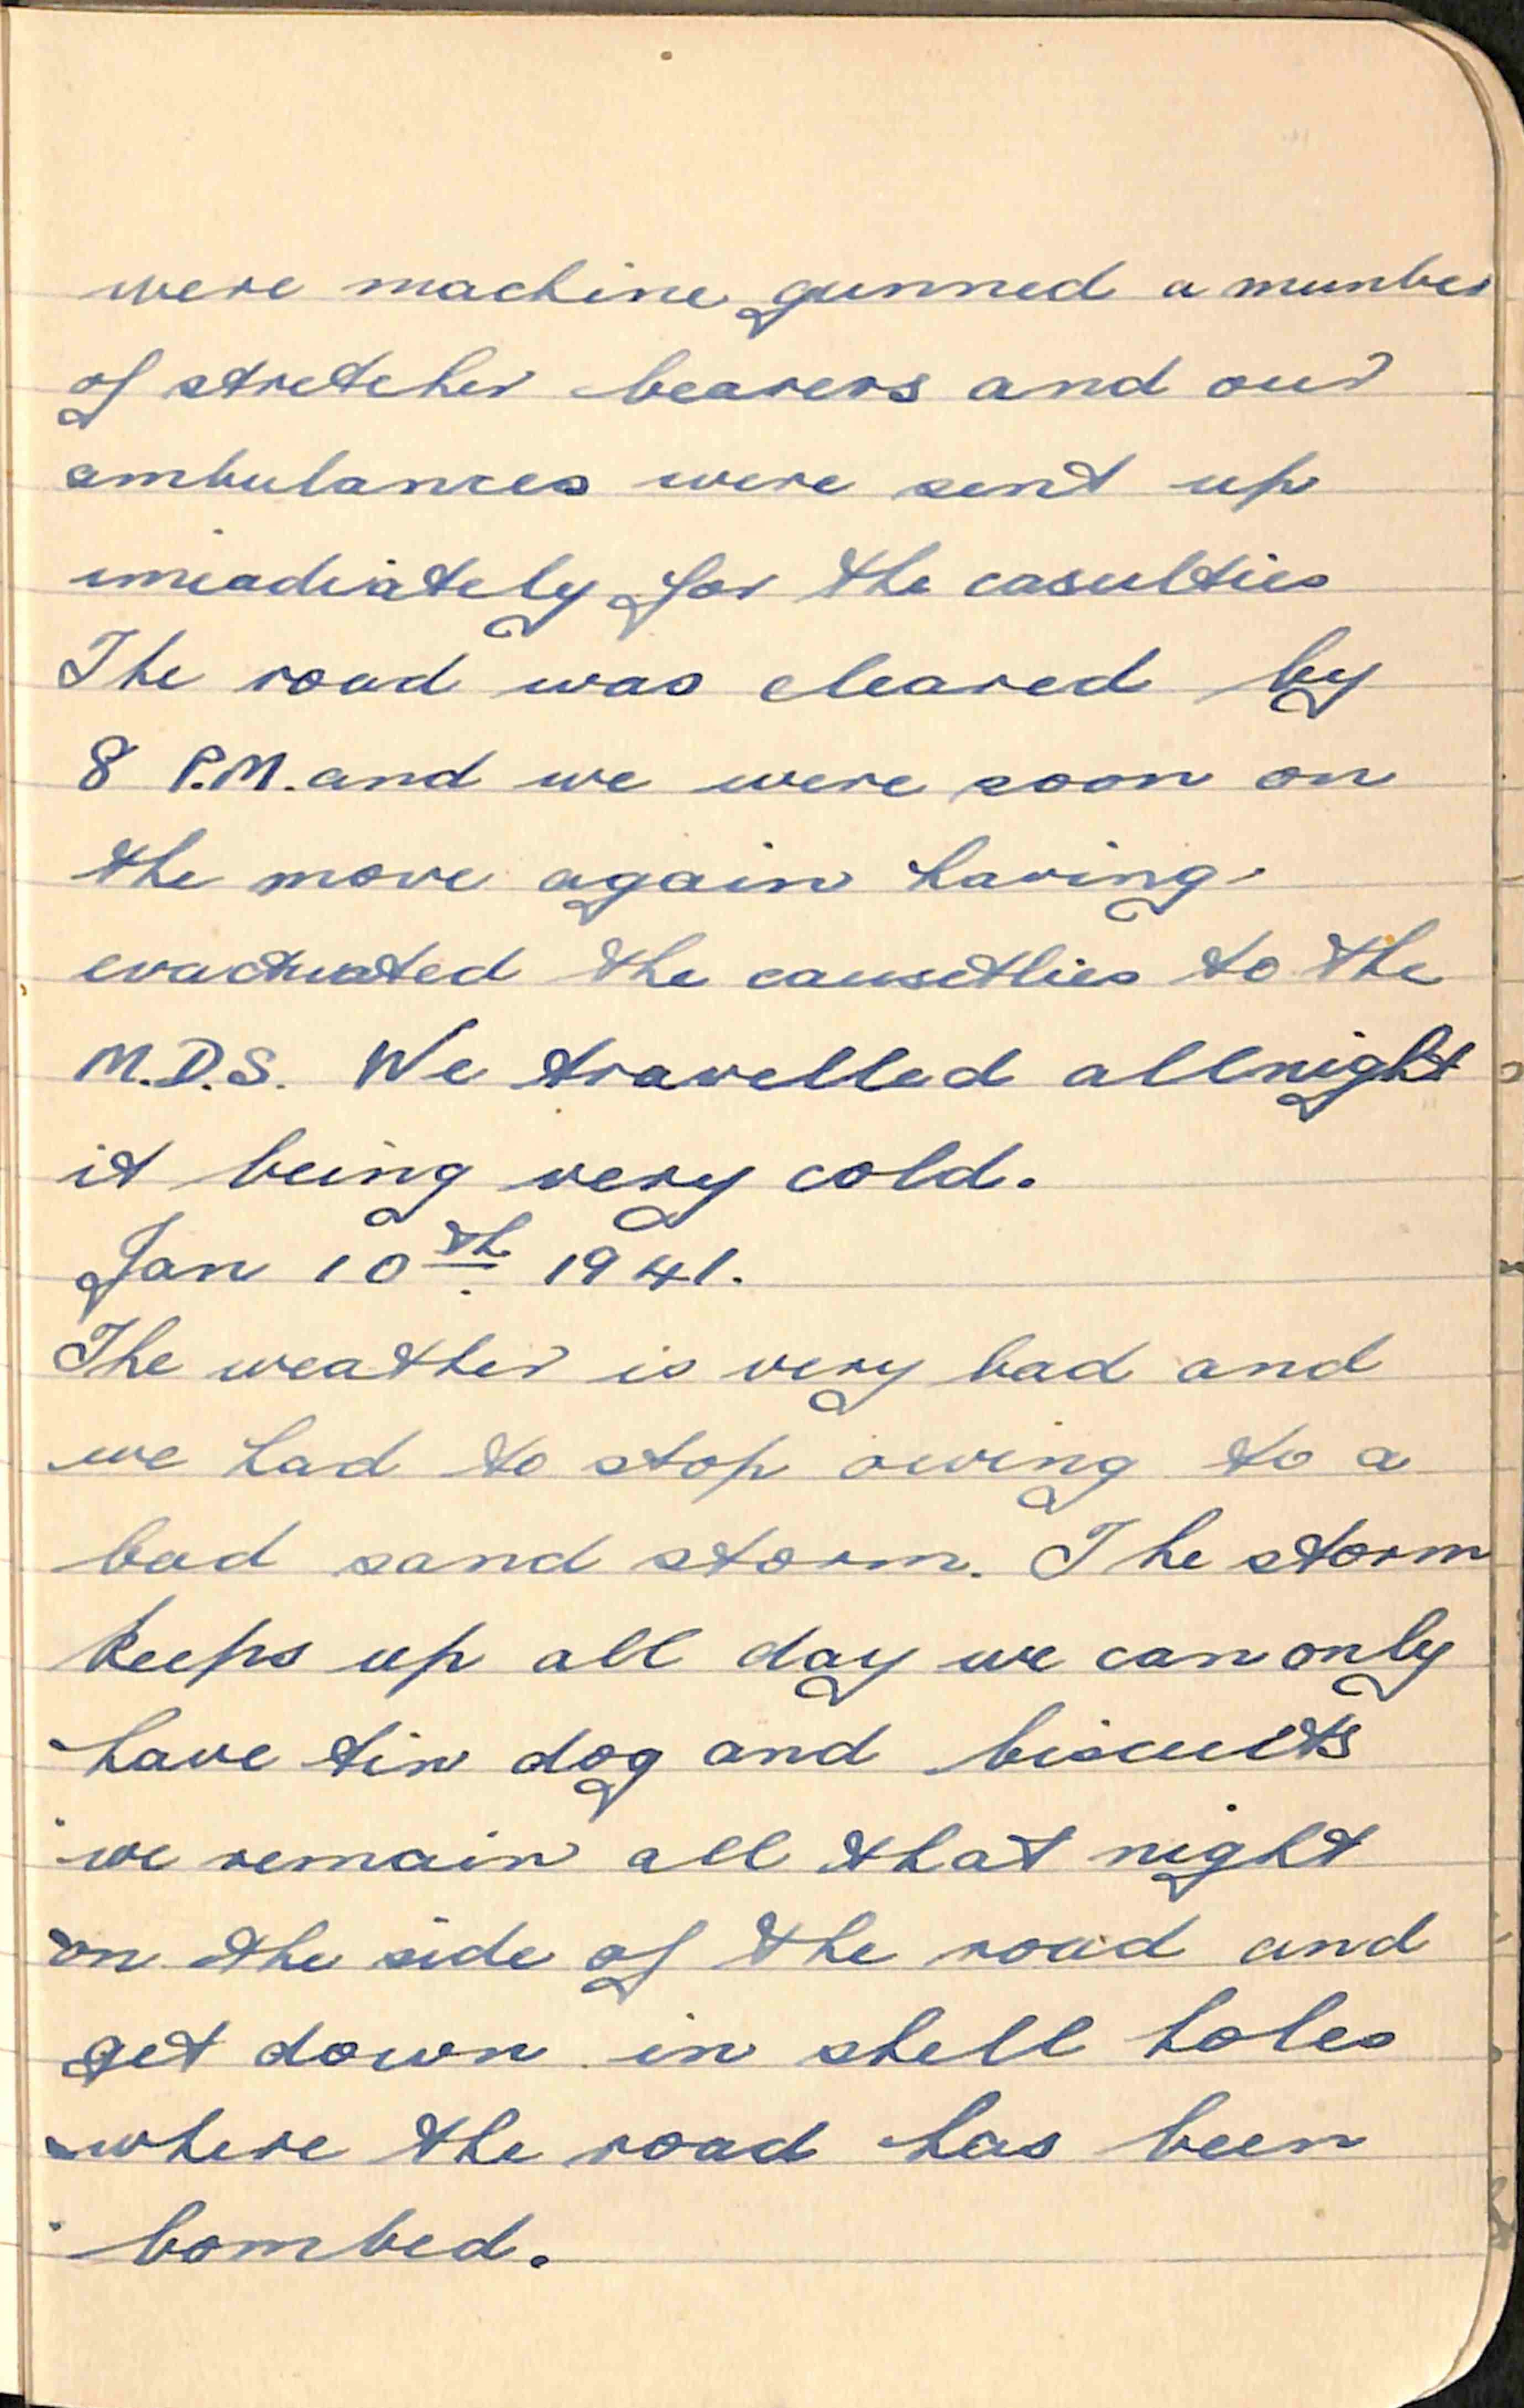 were machine gunned a munber
of stretcher bearers and our
ambulances were sent up
imeadiately for the casulties
The road was cleared by
8 P.M. and we were soon on
the move again having
evactuated the causetlies to the
M.D.S. We travelled allnight
it being very cold.
Jan 10th 1941.
The weather is very bad and
we had to stop owing to a
bad sand storm. The storm
keeps up all day we can only
have tin dog and biscuits
we remain all that night
on the side of the road and
get down in shell holes
where the road has been
bombed.